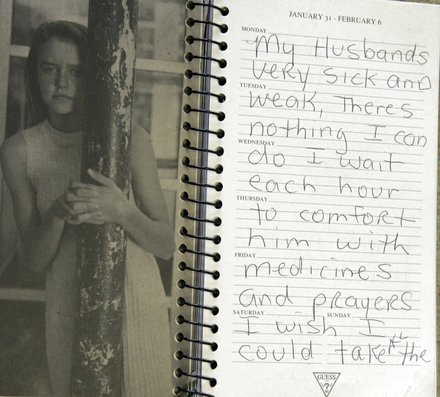 JANUARY 31 - FEBRUARY 6
MONDAY
My Husbands
very sick and
TUESDAY
weak, Theres
nothing I can
WEDNESDAY
do I wait
each hour
THURSDAY
to comfort
him with
FRIDAY
medicines
and prayers
SATURDAY SUNDAY
I wish I
could take all the
GUESS
?